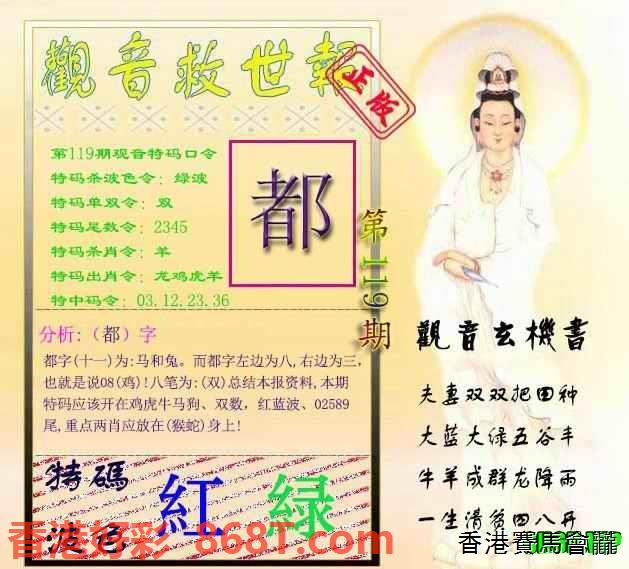 觀音救世報
正版
第119期观音特码口令
特码杀波色令：绿波
特码单双令：双
特码尾数令：2345
特码杀肖令：羊
特码出肖令：龙鸡虎羊
特中码令：03.12.23.36
都
第119期
分析:（都）字
都字(十一)为:马和兔。而都字左边为八,右边为三,
也就是说08(鸡)!八笔为:(双)总结本报资料,本期
特码应该开在鸡虎牛马狗、双数，红蓝波、02589
尾,重点两肖应放在(猴蛇)身上!
觀音玄機書
夫妻双双把田种
大蓝大绿五谷丰
牛羊成群龙降雨
一生清贫四八开
特碼
波色
紅 绿
香港好彩 868T.com
香港賽馬會